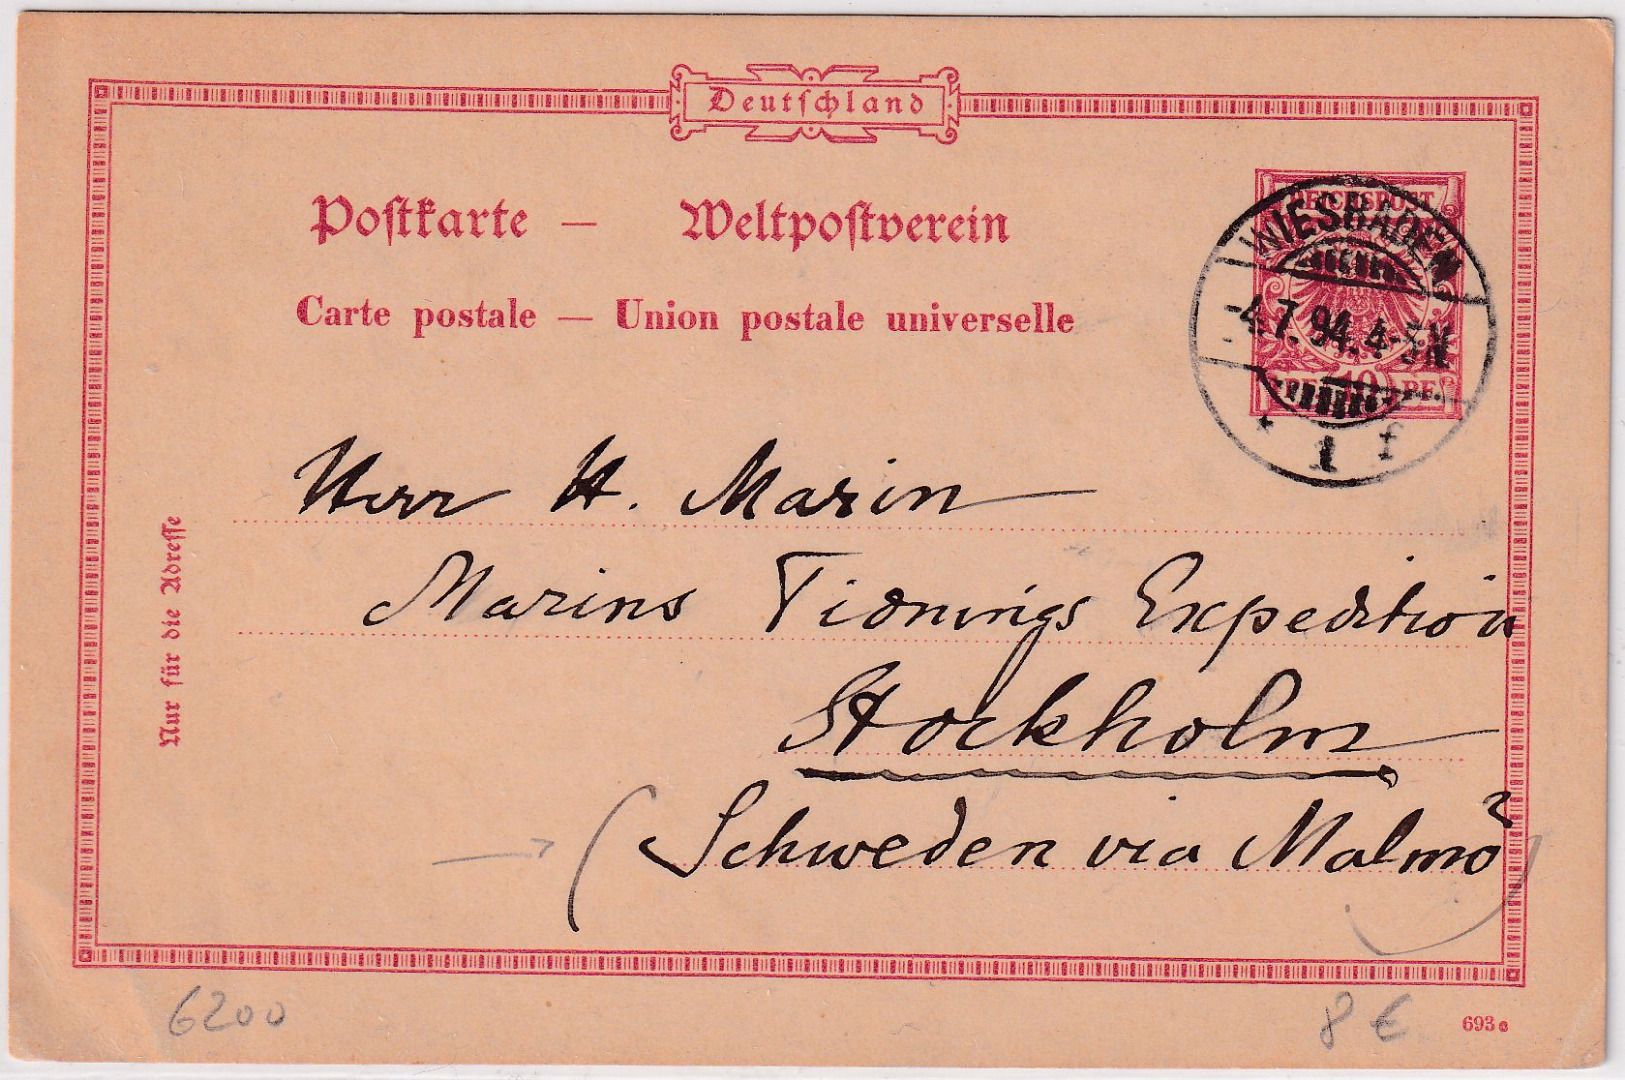 Deutschland
Postkarte — Weltpostverein
Carte postale — Union postale universelle
REICHSPOST
10
WIESBADEN
-4.7.94.4-5N
* 1 f
Herr H. Marin
Marins Tidnings Expedition
Stockholm
(Schweden via Malmö)
Nur für die Adresse
6200
8 €
693 e